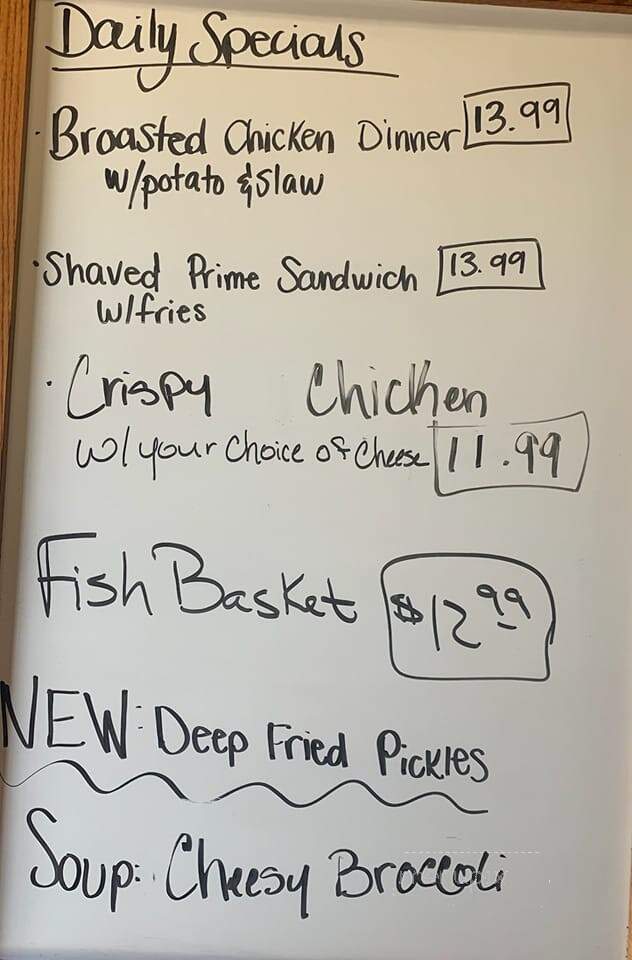 Daily Specials
· Broasted Chicken Dinner 13.99
w/potato & Slaw
· Shaved Prime Sandwich 13.99
w/fries
· Crispy Chicken
w/ your Choice of Cheese 11.99
Fish Basket $12 99
NEW: Deep Fried Pickles
Soup: Cheesy Broccoli